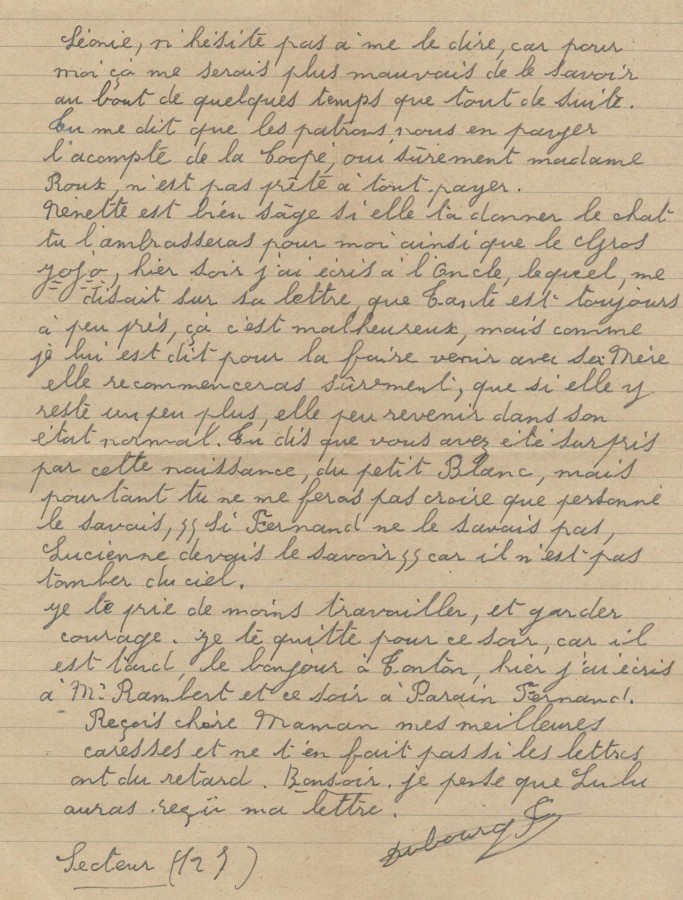 Léonie, n'hésite pas à me le dire, car pour
moi çà me serais plus mauvais de le savoir
au bout de quelques temps que tout de suite.
Tu me dit que les patrons vous en payer
l'acompte de la Coopé, oui sûrement madame
Roux, n'est pas prête à tout payer.
Nénette est bien sâge si elle t'à donner le chat
tu l'ambrasseras pour moi ainsi que le Gros
yojo, hier soir j'ai écris à l'Oncle, lequel, me
disait sur sa lettre, que Tante est toujours
à peu prés, çà c'est malheureux, mais comme
je lui est dit pour la faire venir avec sa Mère
elle recommenceras sûrement, que si elle y
reste un peu plus, elle peu revenir dans son
état normal. Tu dis que vous avez été surpris
par cette naissance, du petit Blanc, mais
pourtant tu ne me feras pas croire que personne
le savais, si Fernand ne le savais pas,
Lucienne devais le savoir car il n'est pas
tomber du ciel.
Je te prie de moins travailler, et garder
courage. Je te quitte pour ce soir, car il
est tard, le bonjour à Tonton, hier j'ai écris
à Mr Rambert et ce soir à Parain Fernand.
Reçois chère Maman mes meilleures
caresses et ne t'en fait pas si les lettres
ont du retard. Bonsoir. je pense que Lulu
auras reçu ma lettre.
Dubourg
Secteur (125)